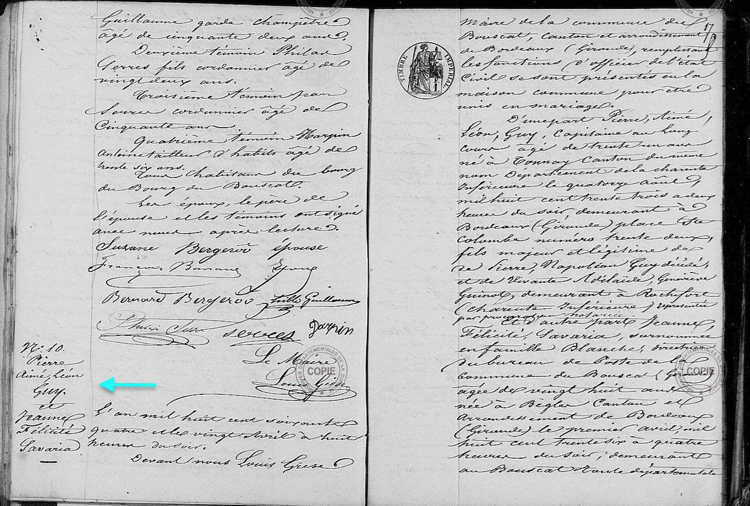 Guillaume garde champêtre
âgé de cinquante deux ans.
Deuxième témoin Philas
Serres fils cordonnier âgé de
vingt deux ans.
Troisième témoin Jean
cordonnier âgé de
Cinquante ans
Quatrième témoin
Antoine tailleur d'habits âgé de
trente six ans.
Tous habitans du bourg
du Bourg de Bouscat.
Les époux, le père de
l'épouse et les témoins ont signé
avec nous après lecture.
Suzane Bergerоо épouse
François époux
Bernard Bergeroo Guillaume
Le Maire
Louis
N° 10.
Pierre
Aimé, Léon
Guy.
et
Jeanne
Félicité
Savaria.
L'an mil huit cent soixante
quatre et le vingt Avril à huit
heures du soir.
Devant nous Louis
Maire de la commune du
Bouscat, Canton et arrondissement
de Bordeaux (Gironde) remplissant
les fonctions d'officier de l'état
Civil se sont présentés en la
maison commune pour être
unis en mariage.
D'une part Pierre, Aimé,
Léon, Guy, Capitaine au long
cours âgé de trente un ans
né à Tonnay Canton du même
nom Département de la charente
Inférieure le quatorze Août
mil huit cent trente trois à deux
heures du soir, demeurant à
Bordeaux (Gironde) place Ste
Colombe numéro trente deux,
fils majeur et légitime de
de Pierre, Napoléon Guy décédé,
et de vivante Adélaïde, Geneviève
Guinot, demeurant à Rochefort
(Charente Inférieure) représentée
par procuration notariée.
Et d'autre part Jeanne,
Félicité, Savaria, surnommée
en famille Blanche, directrice
du bureau de Poste de la
Commune du Bouscat (
âgée de vingt huit ans
née à Bègles Canton et
Arrondissement de Bordeaux
(Gironde) le premier avril mil
huit cent trente six à quatre
heures du soir, demeurant
au Bouscat Route départementale
TIMBRE IMPERIAL
COPIE
COPIE